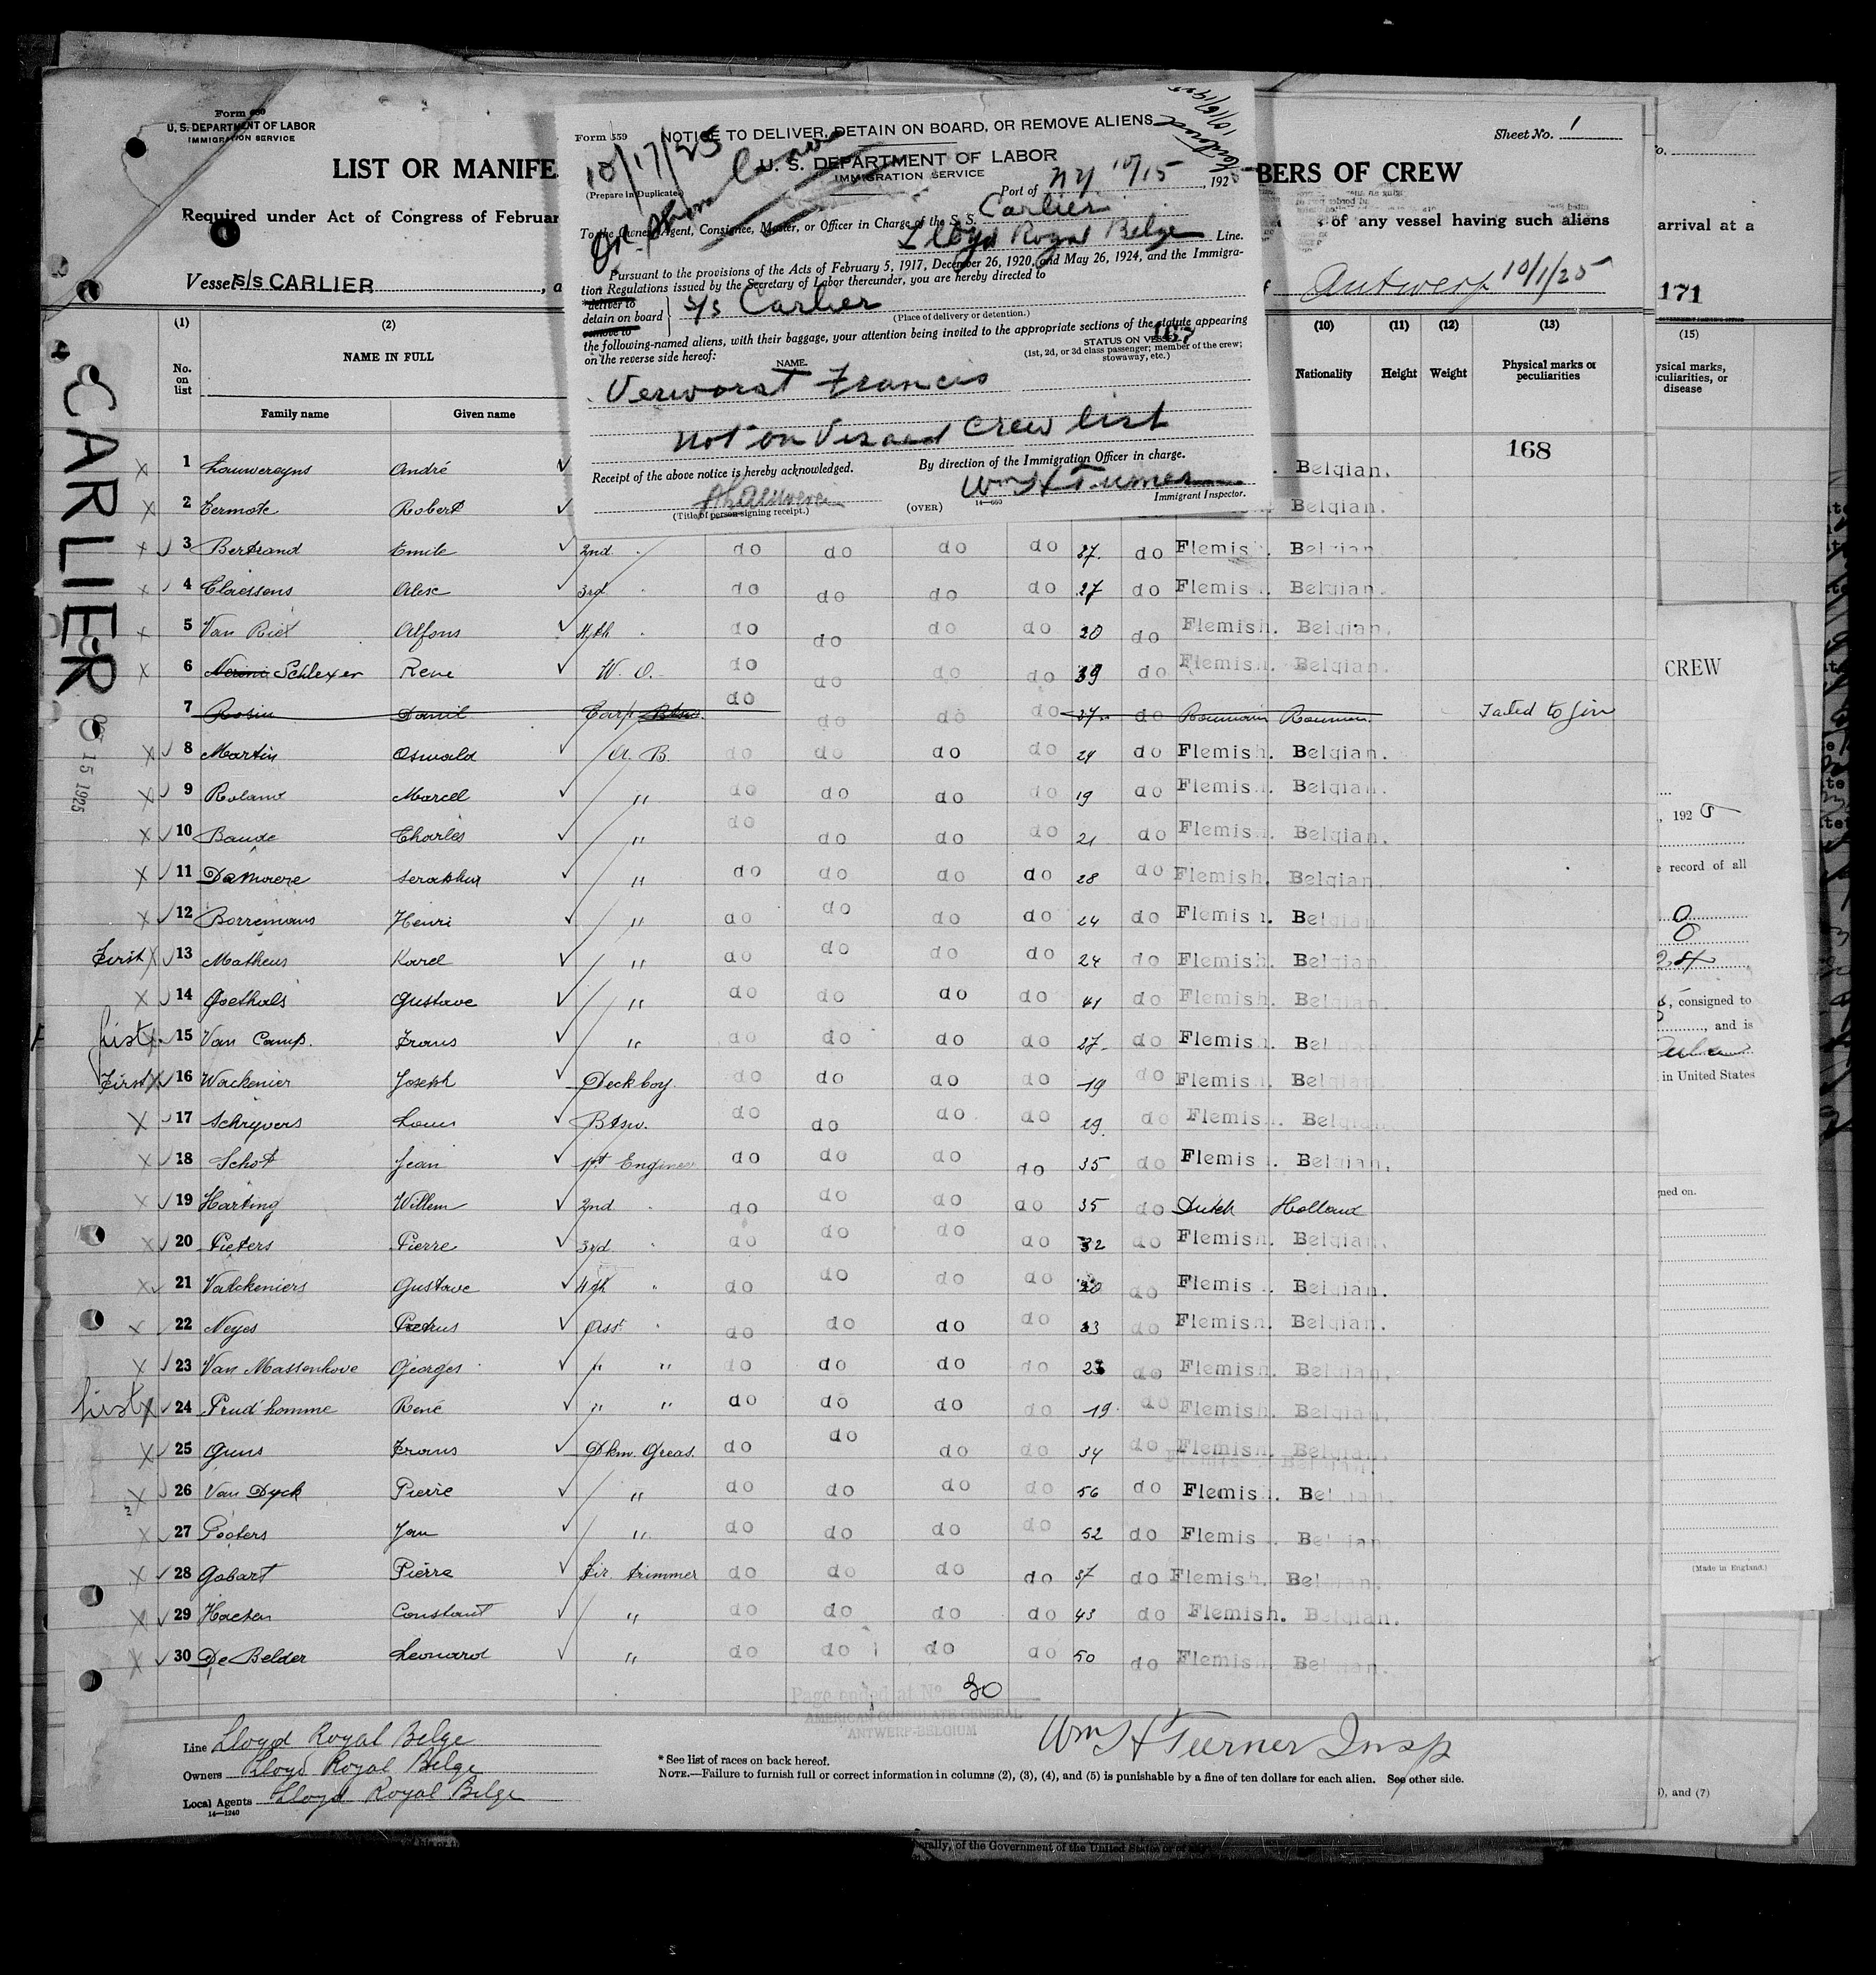 Form 680
U. S. DEPARTMENT OF LABOR
IMMIGRATION SERVICE
LIST OR MANIFE
BERS OF CREW
Sheet No. 1
Required under Act of Congress of Februar
of any vessel having such aliens
arrival at a
Vessel S/S CARLIER, a
Antwerp 10/1/25
171
CARLIER
15 1925
Form 559
NOTICE TO DELIVER, DETAIN ON BOARD, OR REMOVE ALIENS
U. S. DEPARTMENT OF LABOR
IMMIGRATION SERVICE
10/17/25
(Prepare in Duplicate)
Port of NY 10/15, 192
To the Owner, Agent, Consignee, Master, or Officer in Charge of the S. S. Carlier
Lloyd Royal Belge Line.
Pursuant to the provisions of the Acts of February 5, 1917, December 26, 1920, and May 26, 1924, and the Immigra-
tion Regulations issued by the Secretary of Labor thereunder, you are hereby directed to
deliver to
detain on board
remove to
S/s Carlier
(Place of delivery or detention.)
the following-named aliens, with their baggage, your attention being invited to the appropriate sections of the statute appearing
on the reverse side hereof:
167
NAME.
STATUS ON VESSEL
(1st, 2d, or 3d class passenger; member of the crew; stowaway, etc.)
Verworst Francis
not on Visaed Crew list
Receipt of the above notice is hereby acknowledged.
By direction of the Immigration Officer in charge.
Wm H Turner
(Title of person signing receipt.)
(OVER)
14—660
Immigrant Inspector.
(1) (2) (10) (11) (12) (13) (15)
No. on list
NAME IN FULL
Family name Given name
Nationality Height Weight Physical marks or peculiarities
ysical marks, eculiarities, or disease
168
1 Louwereyns André Belgian.
2 Termote Robert Belgian.
3 Bertrand Emile 2nd do do do do 37. do Flemish. Belgian
4 Claessens Alex 3rd do do do do 27 do Flemish. Belgian.
5 Van Riet Alfons 4th do do do do 20 do Flemish. Belgian.
6 Schlexer Rene W. O. do do do do 39 do Flemish. Belgian.
7 Rosin Danil Carp Btsw. do do do do 37 do Roumain Rouman. Failed to join
8 Martin Oswald A. B. do do do do 29 do Flemish. Belgian.
9 Roland Marcel " do do do do 19 do Flemish. Belgian.
10 Baude Charles " do do do do 21 do Flemish. Belgian.
11 DeMoere Seraphin " do do do do 28 do Flemish. Belgian.
12 Borremans Henri " do do do do 24 do Flemish. Belgian
First 13 Matheus Karel " do do do do 24 do Flemish. Belgian
14 Goethals Gustave " do do do do 41 do Flemish. Belgian
first 15 Van Camp. Frans " do do do do 27 do Flemish. Bel
First 16 Wackenier Joseph Deck boy. do do do do 19 do Flemish. Belgian
17 Schryvers Louis Btsw. do do do do 29. do Flemish. Belgian
18 Schot Jean 1st Engineer do do do do 35 do Flemish. Belgian.
19 Harting Willem 2nd do do do do 35 do Dutch Holland
20 Pieters Pierre 3rd " do do do do 32 do Flemish. Belgian.
21 Valckeniers Gustave 4th " do do do do 20 do Flemish. Belgian.
22 Neyes Petrus Asst " do do do do 33 do Flemish. Belgian.
23 Van Massenhove Georges " " do do do do 23 do Flemish. Belgian.
first 24 Prud'homme René " " do do do do 19 do Flemish. Belgian.
25 Guns Frans Dkm. Greas. do do do do 34 do Flemish. Belgian.
26 Van Dyck Pierre " do do do do 56 do Flemish. Bel
27 Pooters Jan " do do do do 52 do Flemish Belgian
28 Gabart Pierre Fir. trimmer do do do do 37 do Flemish. Bel
29 Haeten Constant " do do do do 43 do Flemish. Belgian.
30 De Belder Leonard " do do do do 50 do Flemish. Belgian.
Page ended at No 30
AMERICAN CONSULATE GENERAL
ANTWERP-BELGIUM
Wm H Turner Insp
Line Lloyd Royal Belge
Owners Lloyd Royal Belge
Local Agents Lloyd Royal Belge
14—1240
* See list of races on back hereof.
NOTE.—Failure to furnish full or correct information in columns (2), (3), (4), and (5) is punishable by a fine of ten dollars for each alien. See other side.
CREW
, 192 5
e record of all
0
0
, consigned to
, and is
in United States
ned on.
(Made in England.)
), and (7)
erally, of the Government of the United States or of